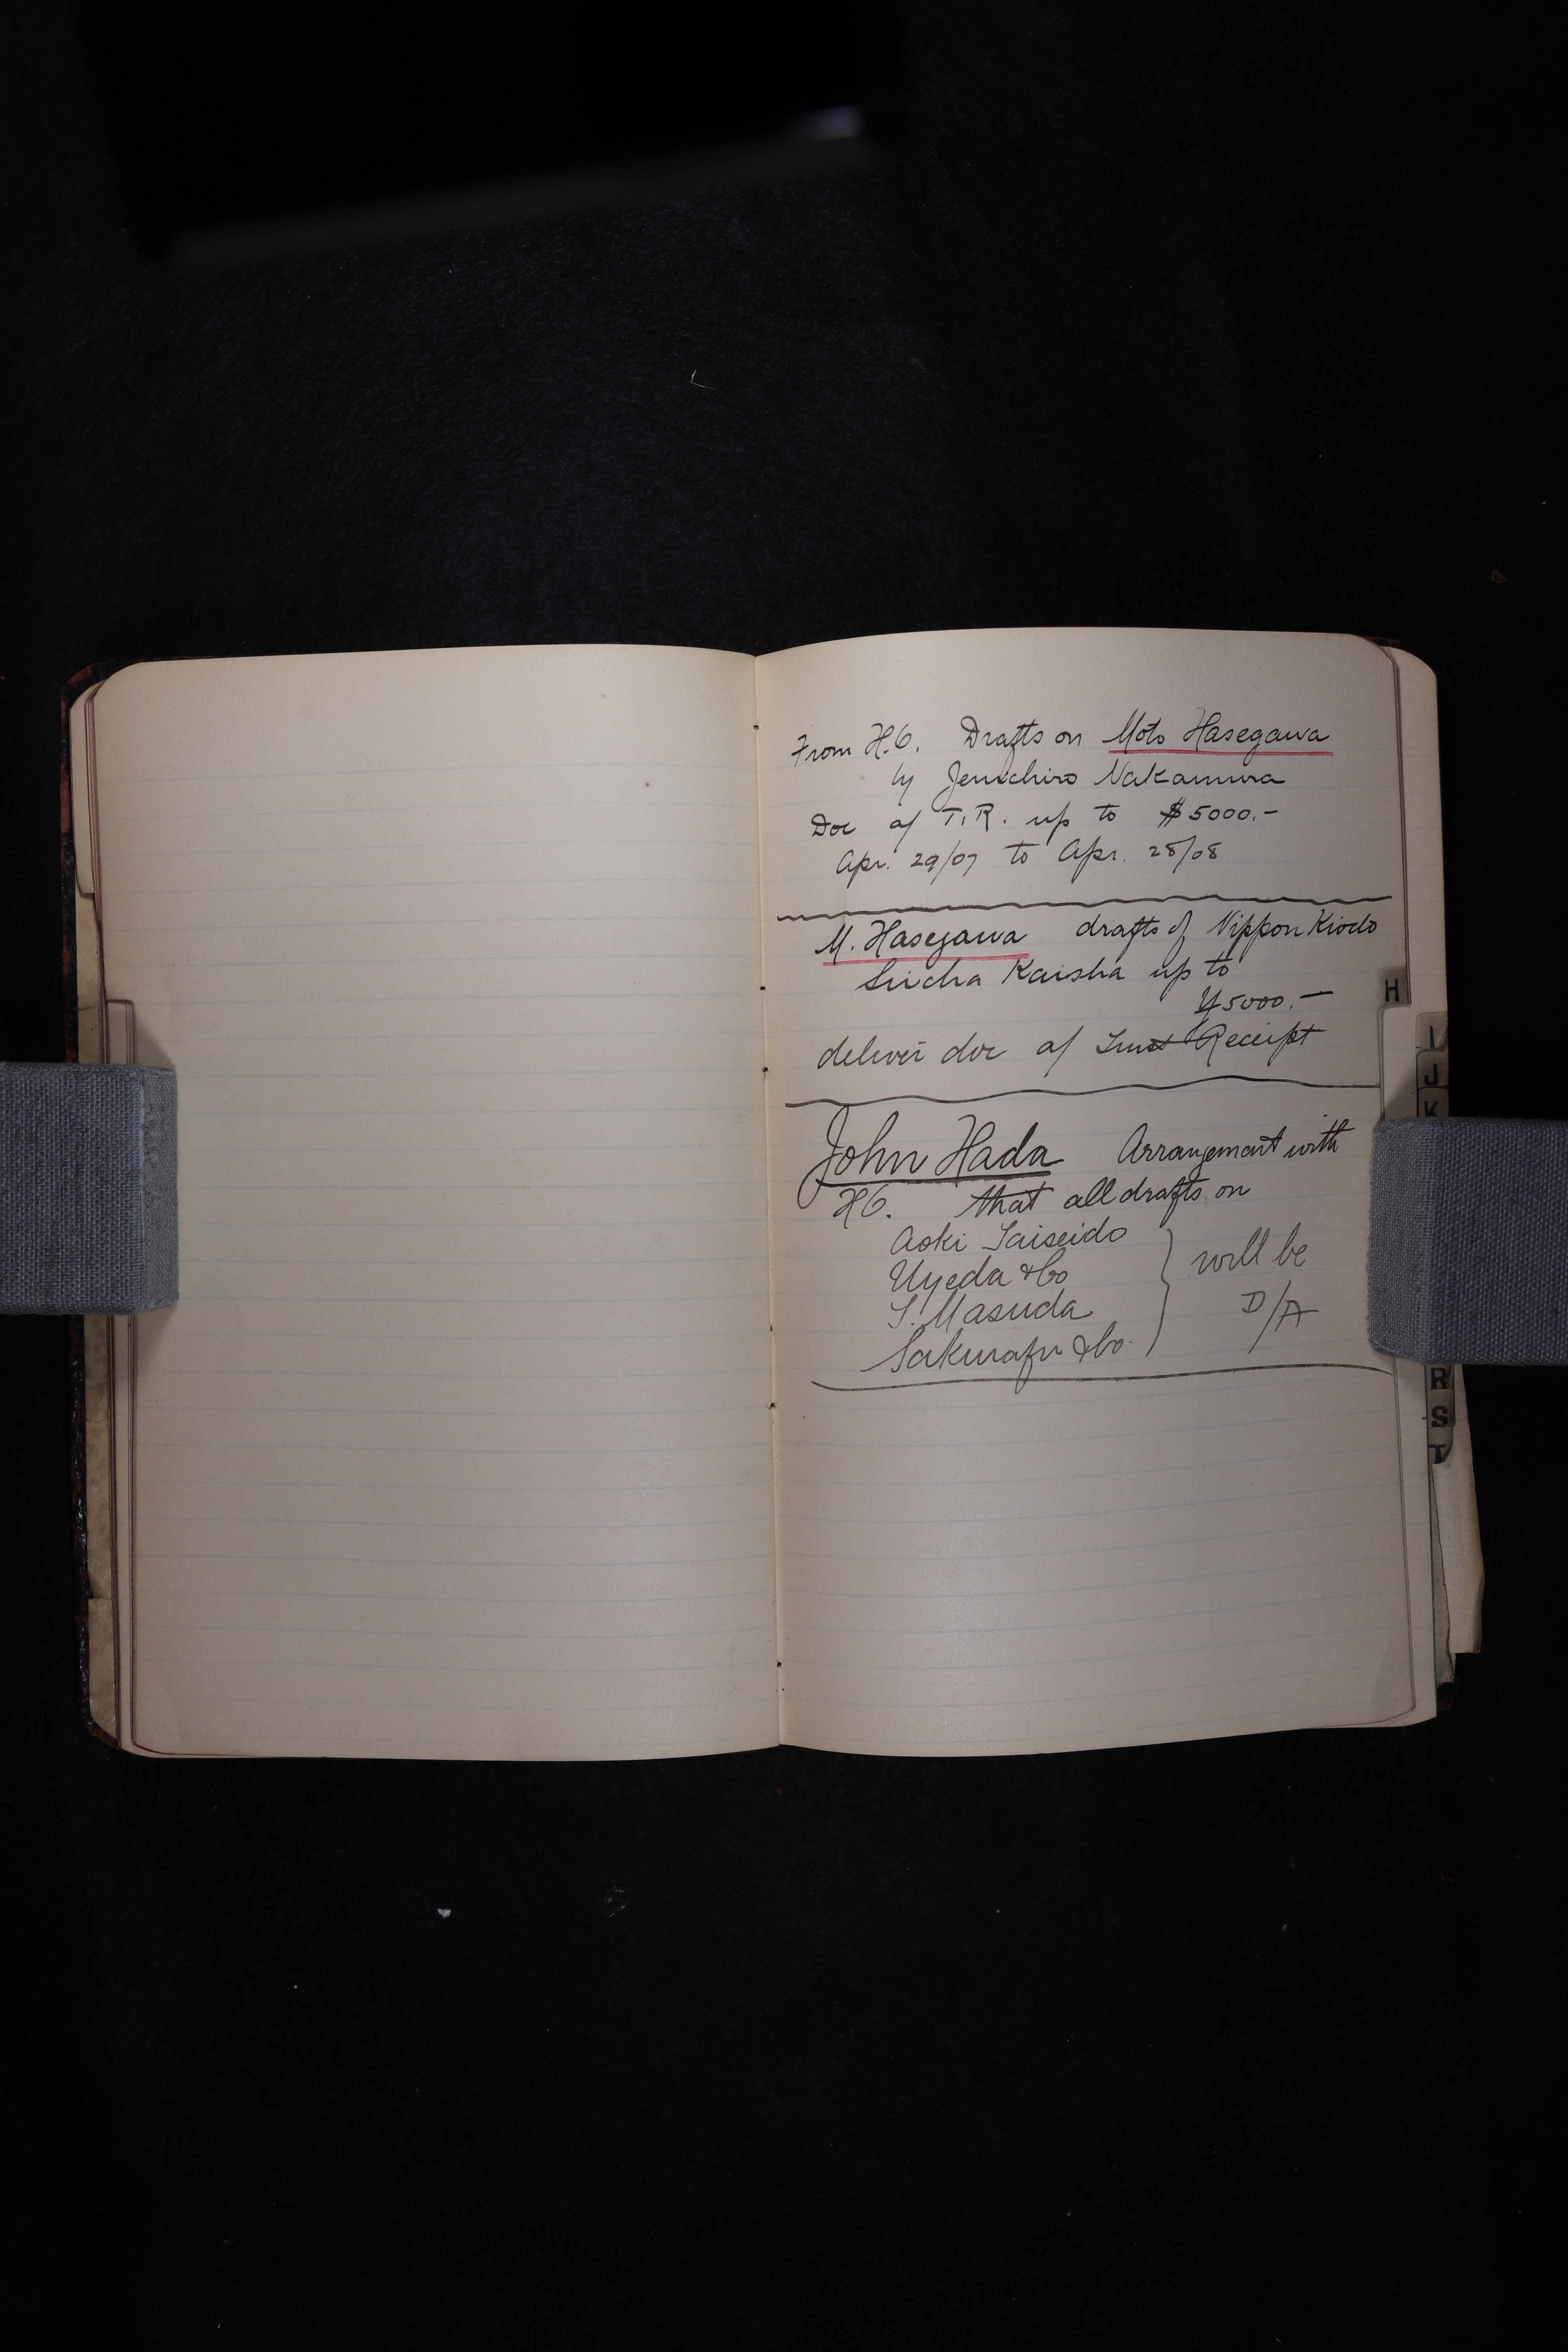 From H.O. Drafts on Moto Hasegawa
by Jenichiro Nakamura
Doc a/ T.R. up to $5000.-
Apr. 29/07 to Apr. 28/08
M. Hasegawa drafts of Nippon Kiodo
Kaisha up to
¥5000.-
deliver doc a/ Trust Receipt
John Hada Arrangement with
H.O. that all drafts on
Aoki Taiseido
Uyeda & Co
S. Masuda
& Co.
will be
D/A
H
I
J
K
R
S
T